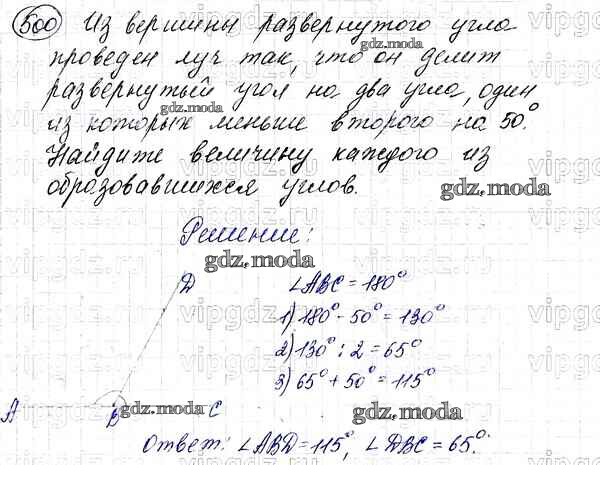 500 Из вершины развернутого угла
проведен луч так, что он делит
развернутый угол на два угла, один
из которых меньше второго на 50°.
Найдите величину каждого из
образовавшихся углов.
gdz.moda
gdz.moda
gdz.moda
Решение:
gdz.moda
D
∠ABC = 180°
1) 180° - 50° = 130°
2) 130° : 2 = 65°
3) 65° + 50° = 115°
A B C
gdz.moda
gdz.moda
Ответ: ∠ABD = 115°, ∠DBC = 65°.